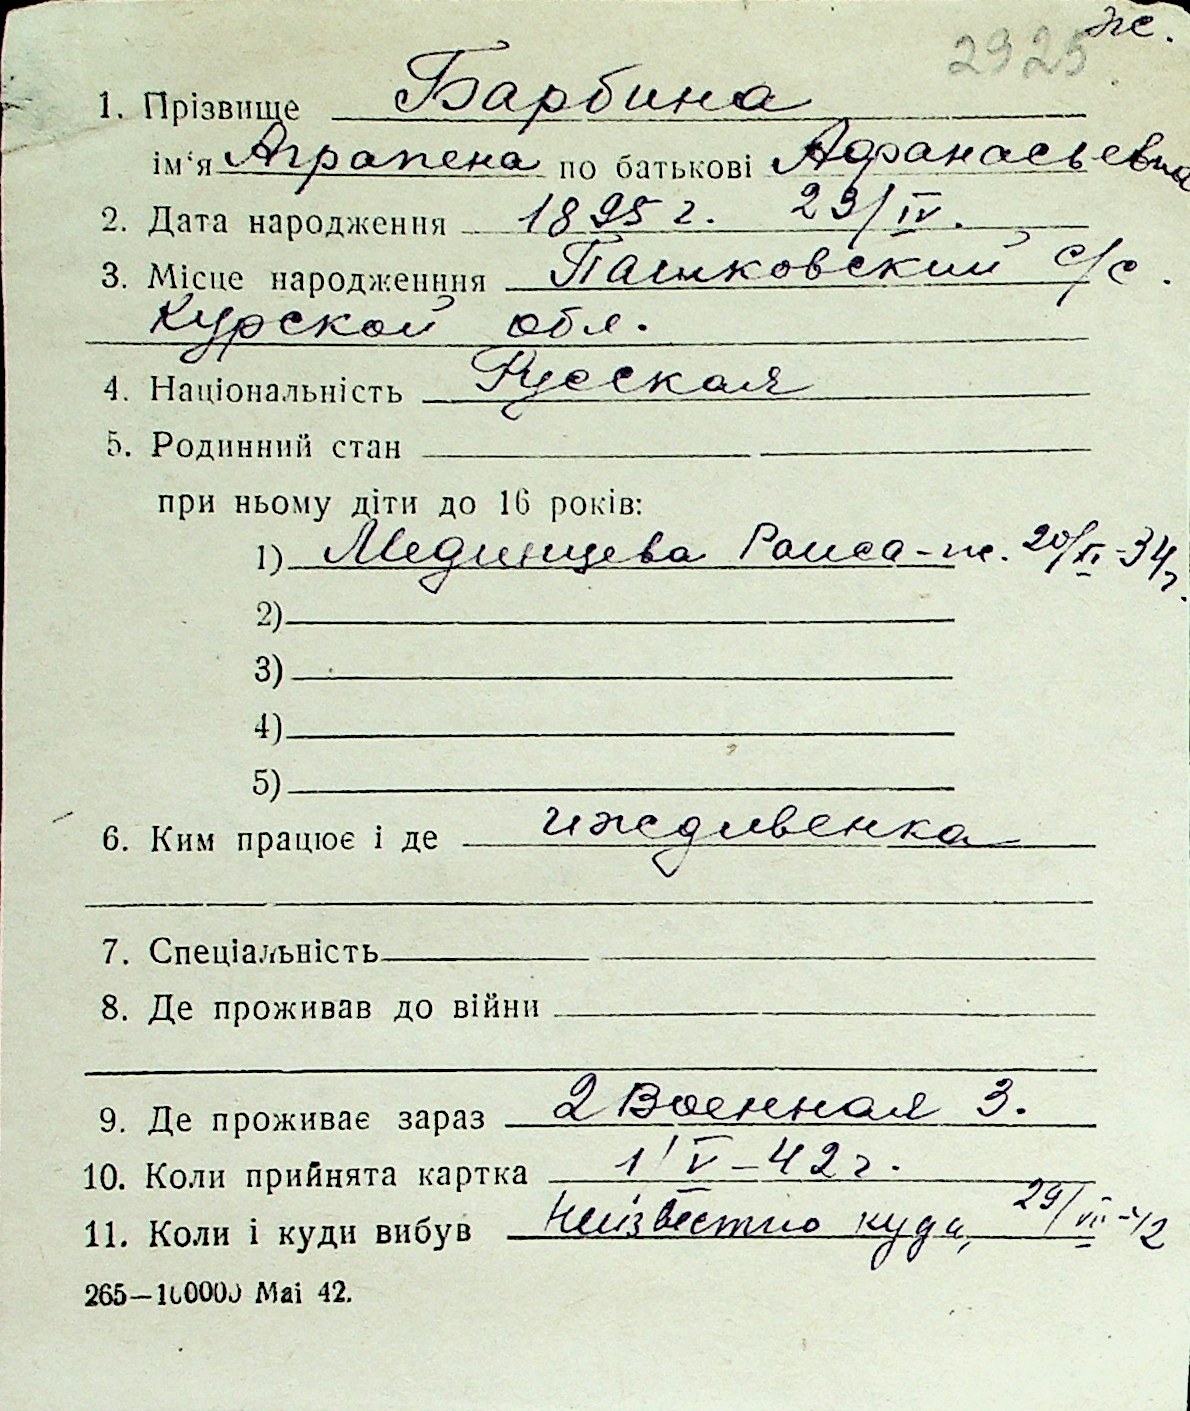 ж.
2925
1. Прізвище Барбина
ім‘я Аграпена по батькові Афанасьевна
2. Дата народження 1895 г. 23/IV.
3. Місце народженння Пашковский с/с.
Курской обл.
4. Національність Русская
5. Родинний стан
при ньому діти до 16 років:
1) Мединцева Раиса - ж. 20/XI - 34 г.
2)
3)
4)
5)
6. Ким працює і де иждивенка
7. Спеціальність
8. Де проживав до війни
9. Де проживає зараз 2 Военная 3.
10. Коли прийнята картка 1/V - 42 г.
11. Коли і куди вибув Неизвестно куда, 29/VII - 42
265—100000 Маі 42.